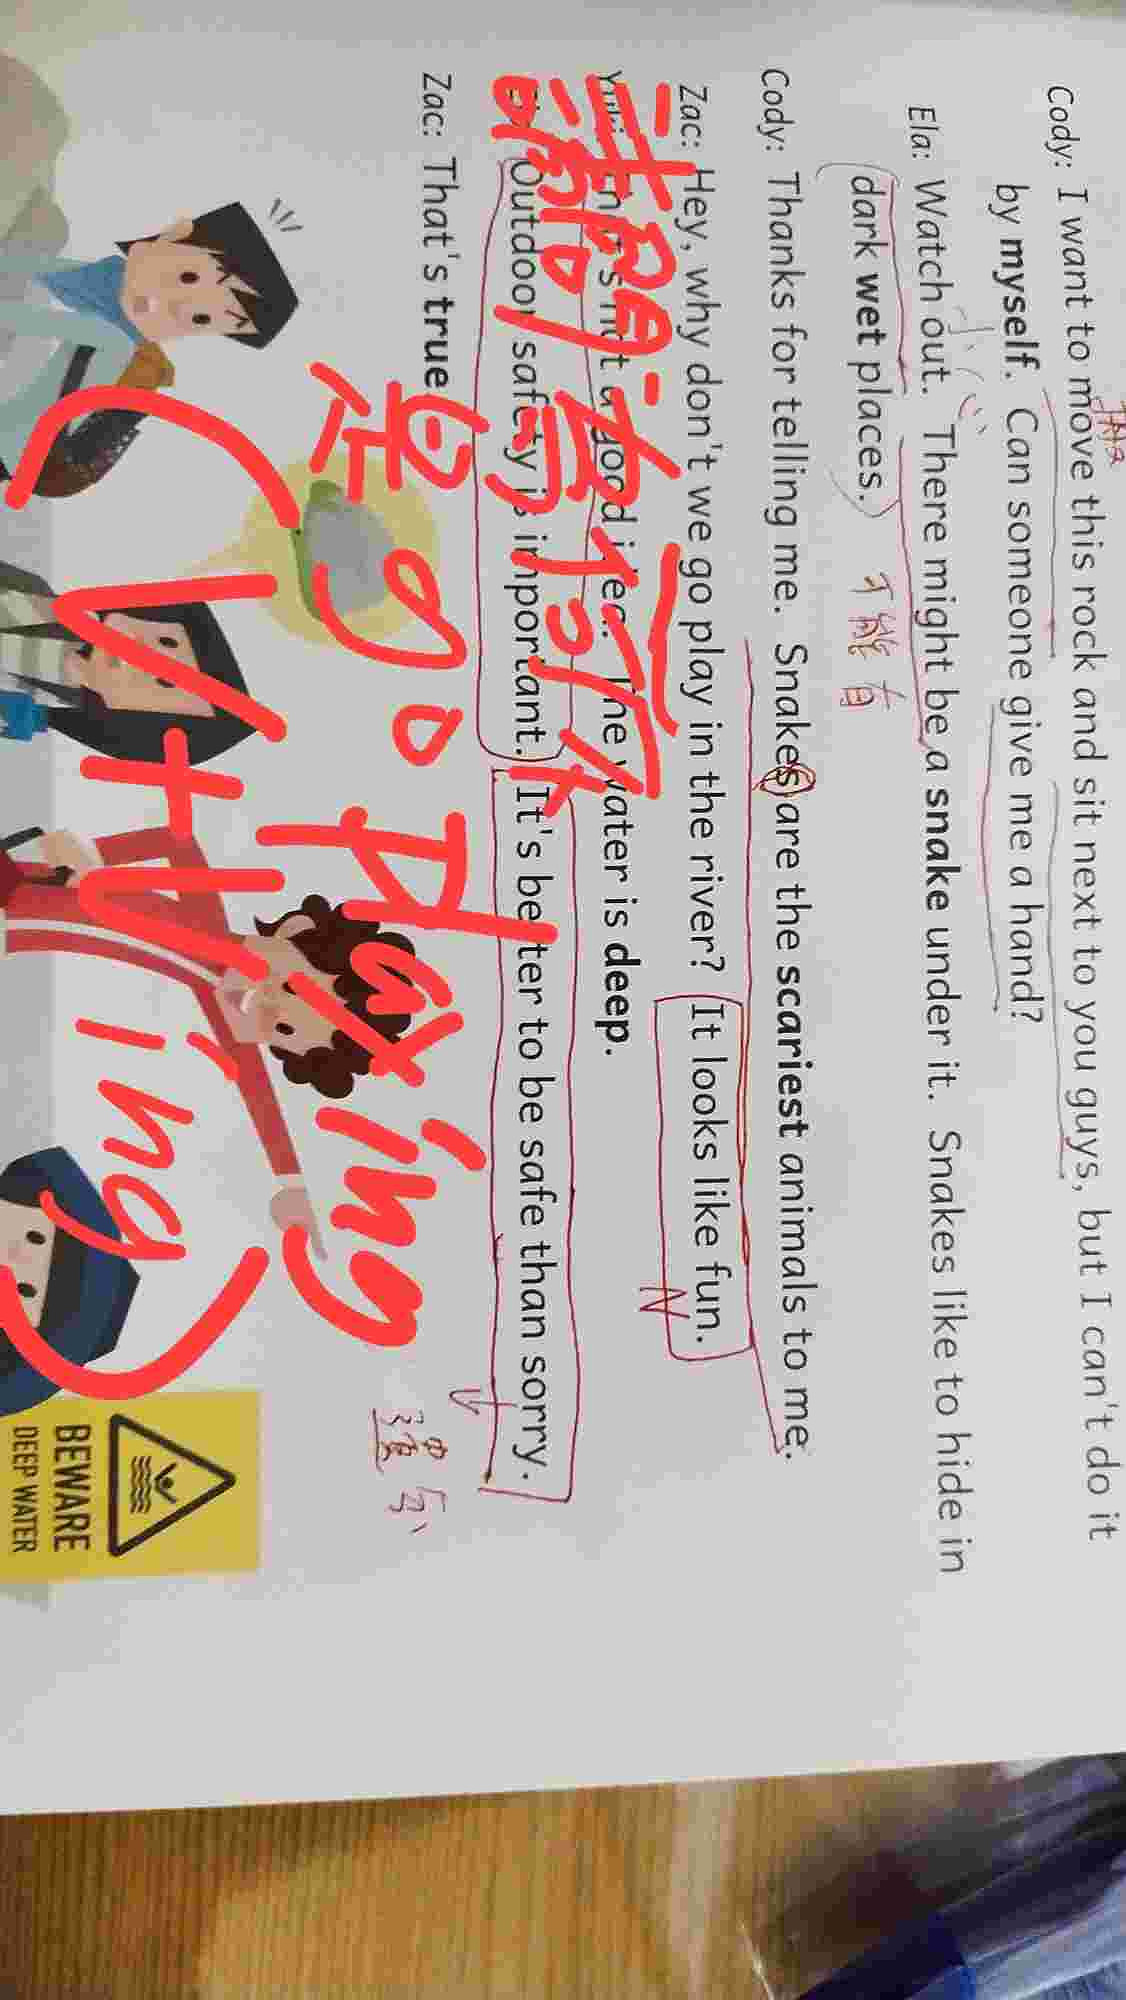 Cody: I want to move this rock and sit next to you guys, but I can't do it
by myself. Can someone give me a hand?
Ela: Watch out. There might be a snake under it. Snakes like to hide in
dark wet places.
可能有
Cody: Thanks for telling me. Snakes are the scariest animals to me.
Zac: Hey, why don't we go play in the river? It looks like fun.
N
That's not a good idea. The water is deep.
Outdoor safety is important. It's better to be safe than sorry.
Zac: That's true
go playing
(V+Ving)
BEWARE
DEEP WATER